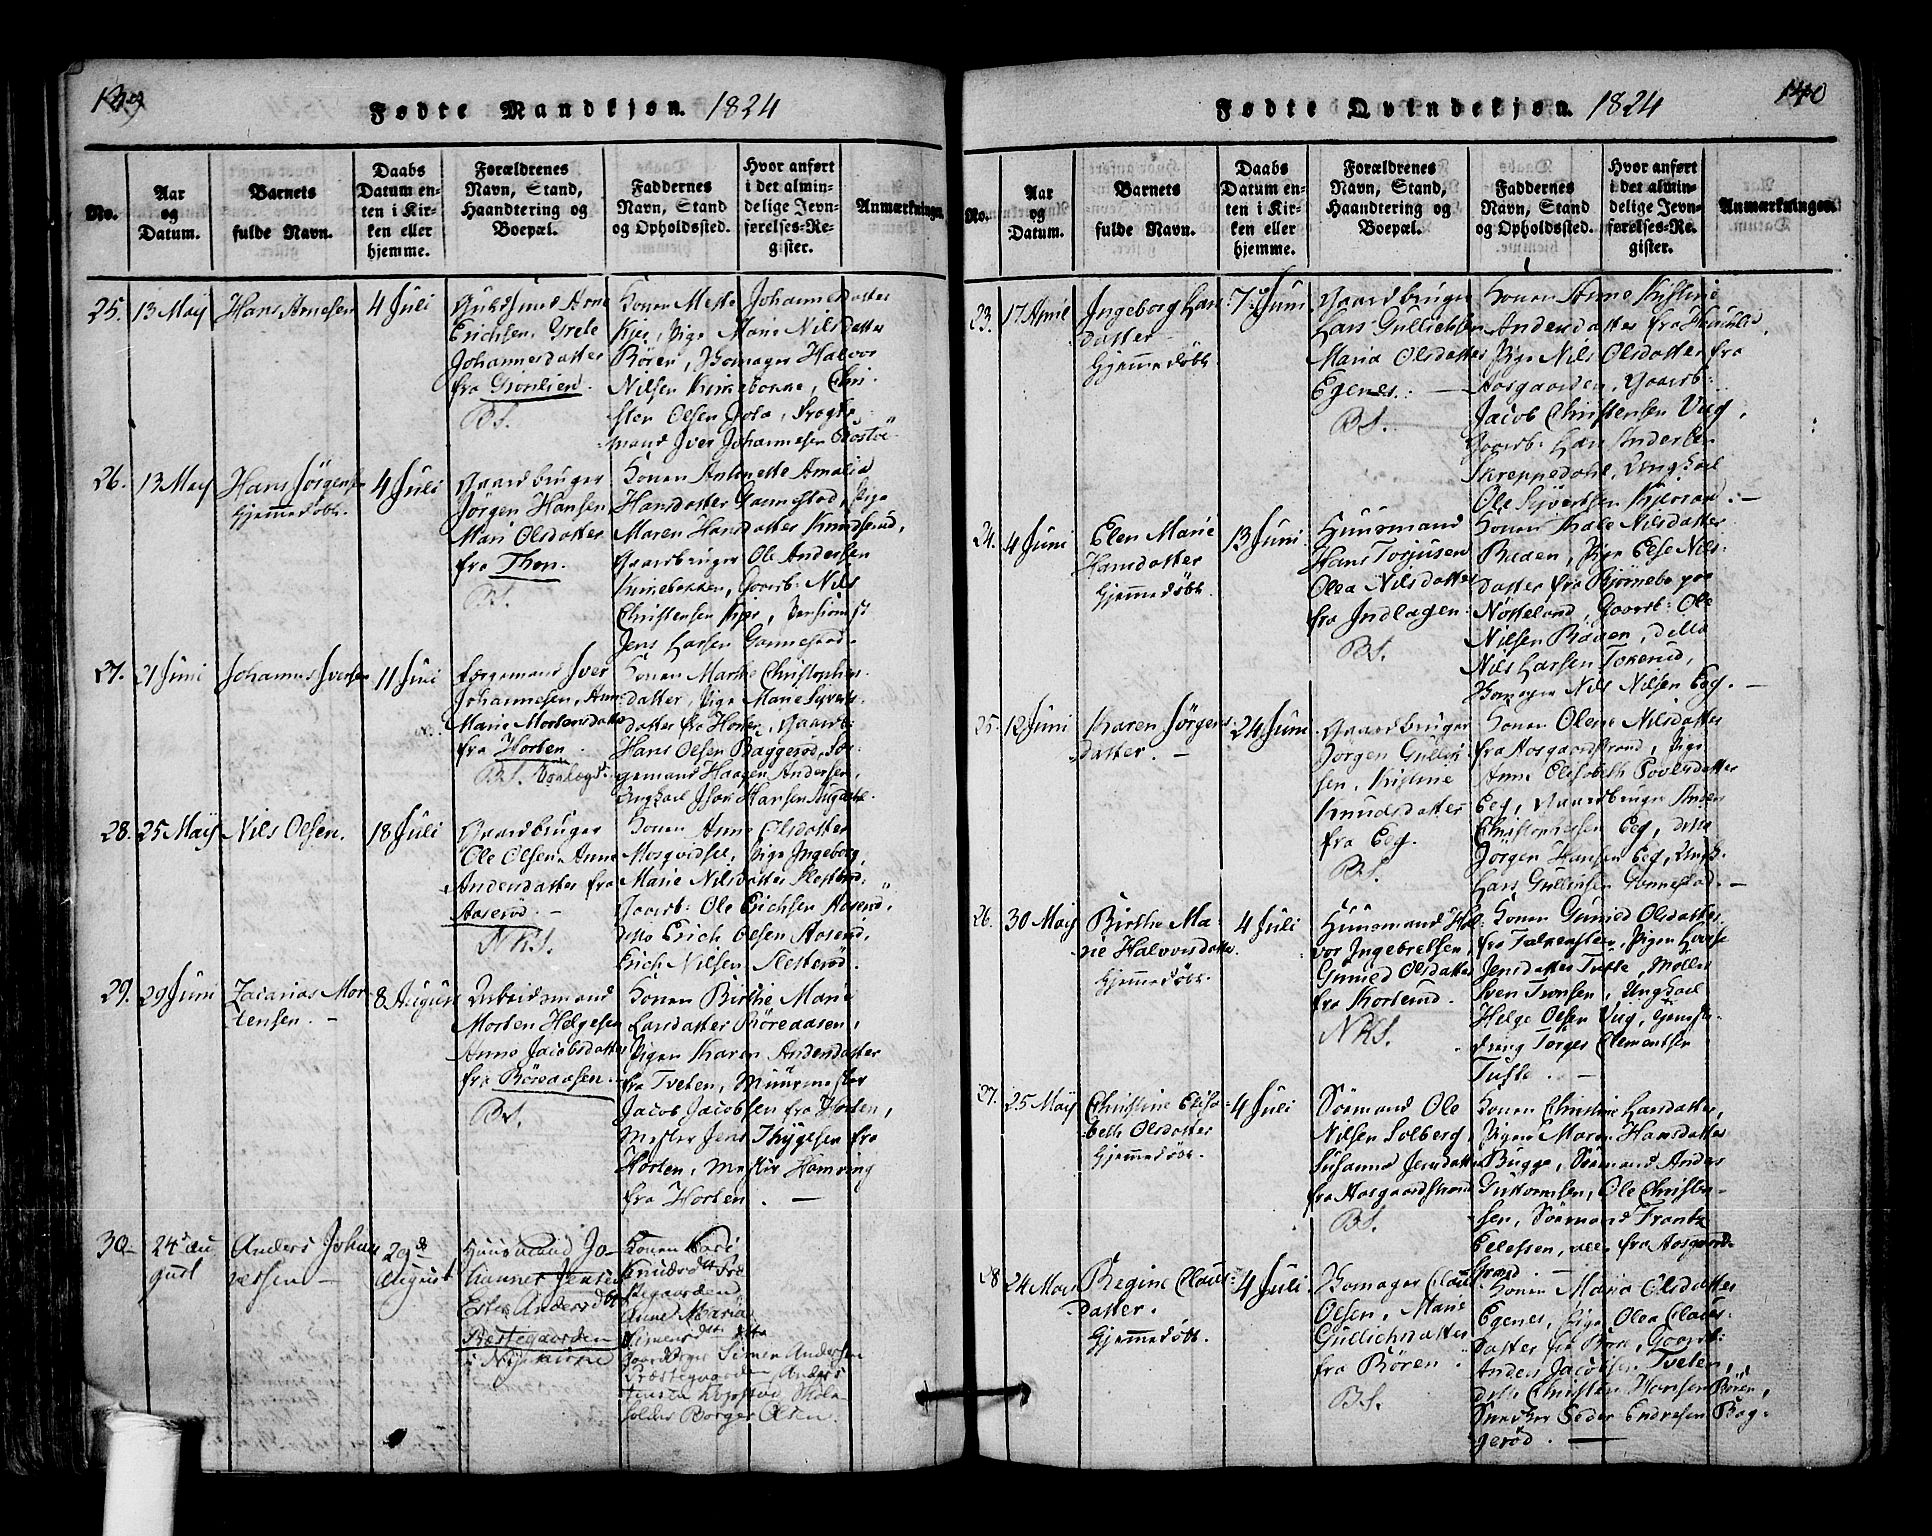 139
Fødte Mandkjøn. 1824
No.
Aar
og
Datum.
Barnets
fulde Navn.
Daabs
Datum en-
ten i Kir-
ken eller
hjemme.
Forældrenes
Navn, Stand,
Haandtering og
Boepæl.
Faddernes
Navn, Stand
og Opholdssted.
Hvor anført
i det almin-
delige Jevn-
førelses-Re-
gister.
Anmærkninger.
25.
13 May
Hans Arnesen
4 Juli
Huusmand Arne
Erichsen, Grete
Johannesdatter
fra Grønlien.
B.S.
Konen Mette Johannesdatter
Kjær, Pige Marie Nilsdatter
Bören, Bomager Halvor
Nilsen Knivebonne, Chri-
sten Olsen
mand Iver Johannesen
26.
13 May
Hans Jörgensen
Hjemmedøbt.
4 Juli
Gaardbruger
Jörgen Hansen
Mari Olsdatter
fra Thon.
B.S.
Konen Antonette Amalia
Hansdatter Gannestad, Pige
Maren Hansdatter Knudsrud,
Gaardbruger Ole Andersen
Gaardb: Nils
Christensen Kjær, Pensionist
Jens Larsen Gannestad.
27.
21 Juni
Johannes Iversen
11 Juli
Iver
Johannesen, Anne
Marie Mortensdatter
fra Horten.
B.S.
Konen Marthe Christophers-
datter, Pige Marie Syverts-
datter fra Horten, Gaardb:
Hans Olsen Baggeröd, Sör-
gemand Haagen Andersen,
Ungkarl Hansen
28.
25 May
Nils Olsen.
18 Juli
Gaardbruger
Ole Olsen, Anne
Andersdatter fra
Aaseröd. —
NKS.
Konen Anne Olsdatter
Pige Ingeborg
Marie Nilsdatter Sletteröd,
Gaardb: Ole Erichsen Aaseröd,
ditto Erich Olsen Aaseröd,
Erich Nilsen Sletteröd.
29.
29 Juni
Zacarias Mor-
tensen. —
8 August
Arbeidsmand
Morten Helgesen
Anne Jacobsdatter
fra Böreaasen.
B.S.
Konen Birthe Marie
Larsdatter Böreaasen,
Pigen Karen Andersdatter
fra Tveten, Muurmester
Jacob Jacobsen fra Horten,
Mester Jens Thygesen fra
Horten, Mester Hamring
fra Horten. —
30-
24de Au
gust
Anders Johan
nessen —
29de
August
Huusmand Jo-
hannes Jensen
Ester Andersdtr
Præstegaarden
i Nykirke
Konen
Knudsdtr Præ
stegaarden
Anne Maria
Simensdtr
Gaardbruger Simen Andersen
Præstegaarden Anders
Jensen
Borger Olsen.
140
Fødte Qvindekjøn. 1824
No.
Aar
og
Datum.
Barnets
fulde Navn.
Daabs
Datum en-
ten i Kir-
ken eller
hjemme.
Forældrenes
Navn, Stand,
Haandtering og
Boepæl.
Faddernes
Navn, Stand
og Opholdssted.
Hvor anført
i det almin-
delige Jevn-
førelses-Re-
gister.
Anmærkninger.
23.
17 April
Ingeborg Lars
datter
Hjemmedøbt
7de Juni
Gaardbruger
Lars Gullichsen
Maria Olsdatter
Egenes. —
B.S.
Konen Anne Kistine
Andersdatter fra
Pige Nils Olsdatter fra
Aasgaarden, Gaardb:
Jacob Christensen Vug,
Gaardb: Lars Andersen
Skreppedahl, Ungkarl
Ole Syvertsen —
24.
4 Juni
Elen Marie
Hansdatter
Hjemmedøbt.
13 Juni
Huusmand
Hans Torjusen
Olea Nilsdatter
fra Indlagen
B.S.
Konen Kale Nilsdatter
Raaen, Pige Else Nils-
datter fra Björnebo paa
Notteland, Gaardb: Ole
Nilsen Raaen, ditto
Nils Larsen Tokerud,
Bomager Nils Nilsen Eeg. —
25.
12 Juni
Karen Jörgens
datter. —
24 Juni
Gaardbruger
Jörgen Gullich
sen, Kistine
Knudsdatter
fra Eeg.
B.S.
Konen Olene Nilsdatter
fra Aasgaardstrand, Pige
Anne Elisabeth Povelsdatter
Eeg, Gaardbruger Anders
Christophersen Eeg, ditto
Jörgen Hansen Eeg, Ungk.
Lars Gullichsen Gannestad. —
26.
30 May
Birthe Ma-
rie Halvorsdatter
Hjemmedøbt.
4 Juli
Huusmand Hal-
vor Ingebretsen,
Gunild Olsdatter
fra Korterud.
NKS.
Konen Gunild Olsdatter
fra Falkensteen, Pigen
Jensdatter Tufte, Møller
Sven Tronsen, Ungkarl
Helge Olsen Vug,
dreng Torger Clementsen
Tufte. —
27.
25 May
Christine Elisa-
beth Olsdatter
Hjemmedøbt.
4 Juli
Sömand Ole
Nilsen Solberg
Susanne Jensdatter
fra Aasgaardstrand
B.S.
Konen Christine Larsdatter,
Pigen Maren Hansdatter
Bugge, Sömand Anders
Guttormsen, Ole Christen-
sen, Sömand Frantz
Ellefsen, alle fra Aasgaard-
strand —
28
24 May
Regine Claus-
datter.
Hjemmedøbt.
4 Juli
Bomager Claus
Olsen, Marie
Gullichsdatter
fra Bören
B.S.
Konen Maria Olsdatter
Egenes, Pige Olea Claus-
datter fra Borre, Gaardb:
Anders Jacobsen Tveten,
ditto Christen Hansen Bören,
Snedker Peder Endresen Bag-
geröd. —